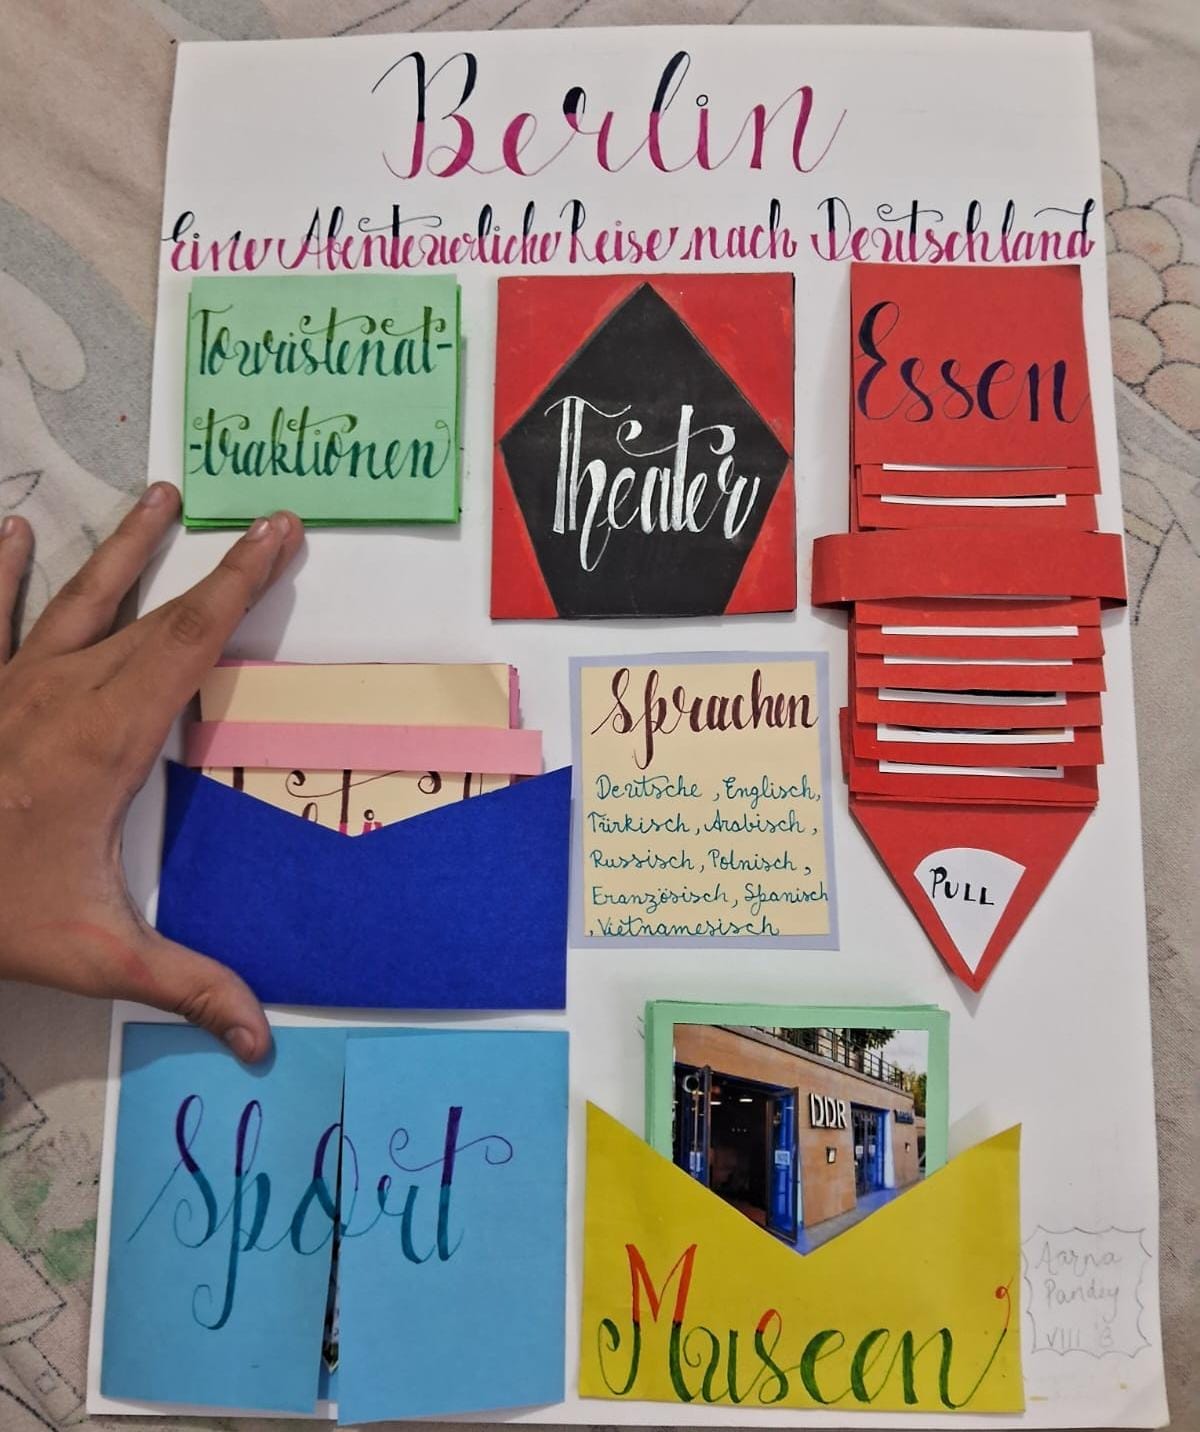 Berlin
Eine Abenteuerliche Reise nach Deutschland
Touristenat-
-traktionen
Theater
Essen
Sprachen
Deutsche, Englisch,
Türkisch, Arabisch,
Russisch, Polnisch,
Französisch, Spanisch
, Vietnamesisch
PULL
DDR
Sport
Museen
Aarna
Pandey
VIII B